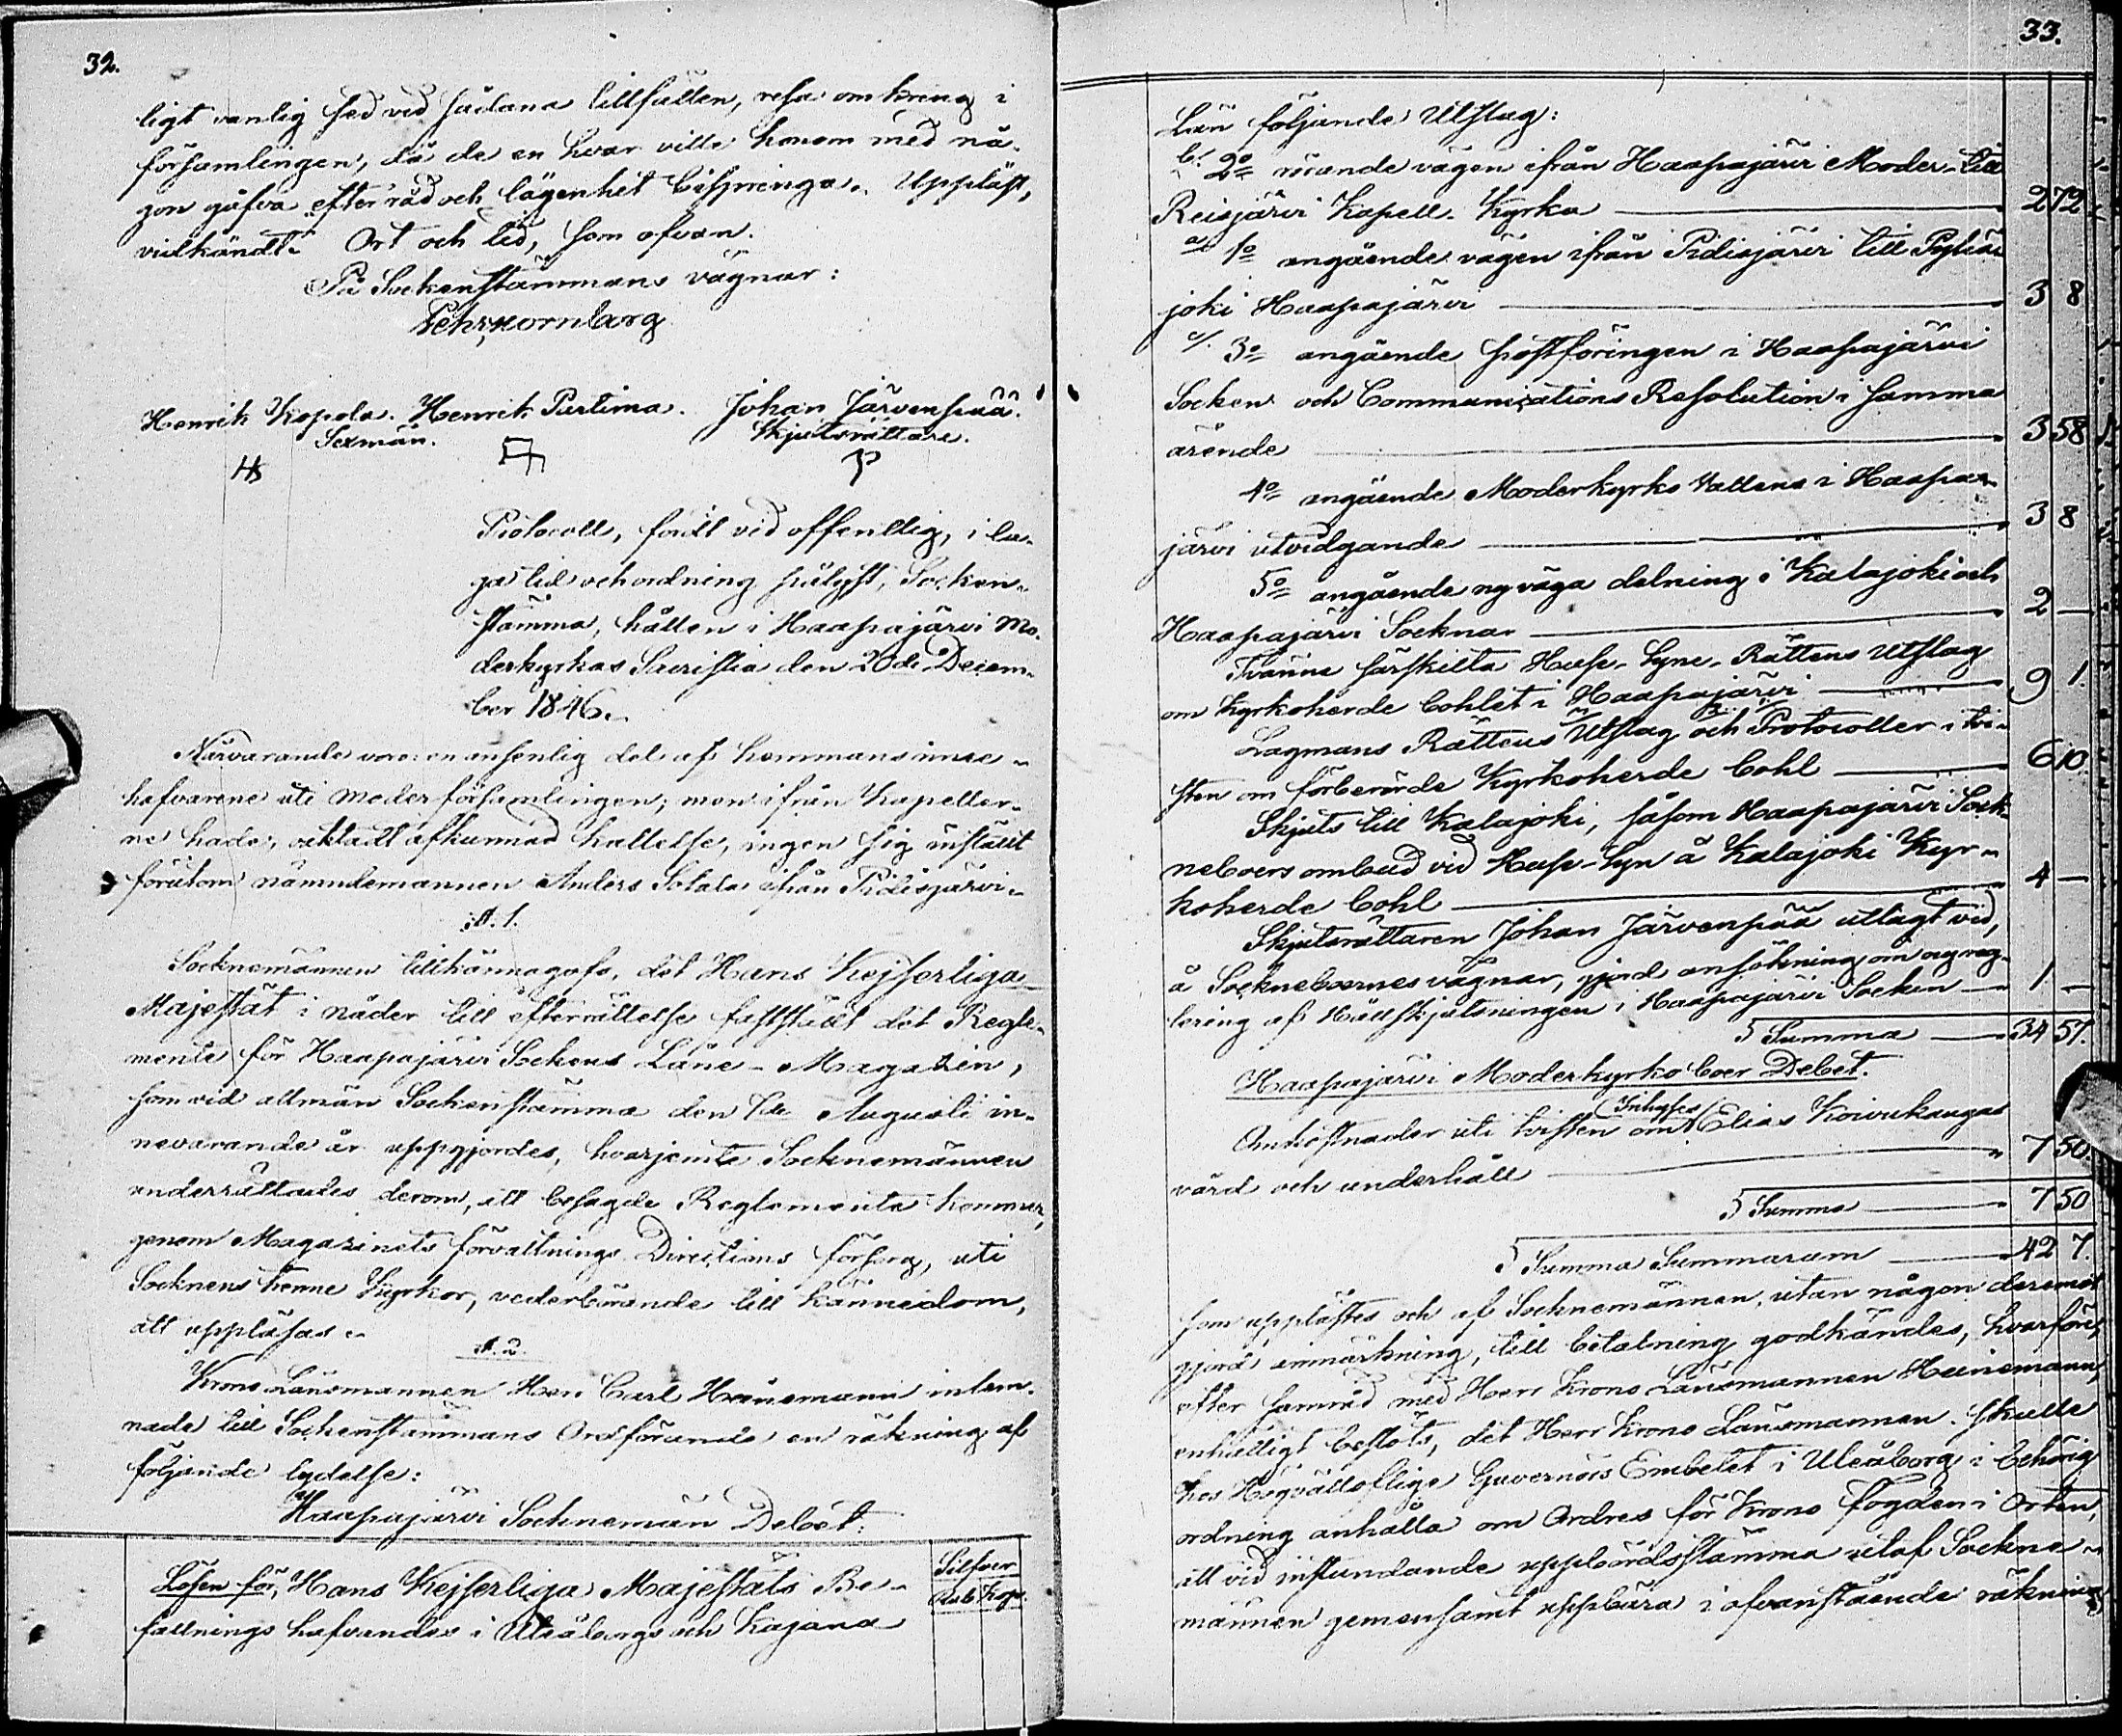 32.
ligt vanlig sed vid sådana tillfällen, resa omkring i
församlingen, då de en hvar ville honom med nå-
gon gåfva efter råd och lägenhet bispringa. Uppläst,
vidkändt. Ort och tid, som ofvan.
På Sockenstämmans vägnar:
Pehr
Henrik Kopola. Henrik Purtima. Johan Järvenpää.
Sexmän. Skjutsrättare.
Protocoll, fördt vid offentlig, i la-
ga tid och ordning pålyst, Socken-
stämma, hållen i Haapajärvi Mo-
derkyrkas Sacristia den 20de Decem-
ber 1846.
Närvarande voro en ansenlig del af hemmansinne-
hafvarene uti moderförsamlingen; men ifrån Kapeller-
ne hade, oaktadt afkunnad kallelse, ingen sig inställt
förutom nämndemannen Anders Solala ifrån Pidisjärvi.
§. 1.
Socknemännen tillkännagafs, det Hans Kejserliga
Majestät i nåder till efterrättelse fastställt det Regle-
mente för Haapajärvi Sockens Låne-Magazin,
som vid allmän Sockenstämma den 1de Augusti in-
nevarande år uppgjordes, hvarjemte Socknemännen
underrättades derom, att besagde Reglemente kommer,
genom Magazinets förvaltnings Directions försorg, uti
Socknens trenne Kyrkor, vederbörande till kännedom,
att uppläsas.
§. 2.
Krono Länsmannen Herr Carl Heinemann inlem-
nade till Sockenstämmans Ordförande en räkning af
följande lydelse:
Haapajärvi Socknemän Debet:
Silfver
Rub. Kop.
Lösen för, Hans Kejserliga Majestäts Be-
fallnings hafvandes i Uleåborgs och Kajana
33.
Län följande Utslag:
b. 2o rörande vägen ifrån Haapajärvi Moder- till
Reisjärvi Kapell. Kyrka 2 72
a 1o angående vägen ifrån Pidisjärvi till Pyhä-
joki Haapajärvi 3 8
c. 3o angående postföringen i Haapajärvi
Socken och Communications Resolution i samma
ärende 3 58
4o angående Moderkyrko Vallens i Haapa-
järvi utvidgande 3 8
5o angående ny väga delning i Kalajoki och
Haapajärvi Socknar 2 —
Tvänne särskilta Huse-Syne-Rättens Utslag
om Kyrkoherde bohlet i Haapajärvi 9 1.
Lagmans Rättens Utslag och Protocoller i tvi-
sten om förberörde Kyrkoherde bohl 6 10.
Skjuts till Kalajoki, såsom Haapajärvi Sock-
neboers ombud vid Huse-Syn å Kalajoki Kyr-
koherde bohl 4 —
Skjutsrättaren Johan Järvenpää utlagt vid,
å Sockneboernes vägnar, gjord ansökning om ny reg-
lering af Hållskjutsningen i Haapajärvi Socken 1 —
Summa 34 57.
Haapajärvi Moderkyrko boer Debet.
Omkostnader uti tvisten om Inhyses Elias Koivukangas
vård och underhåll 7 50.
Summa 7 50
Summa Summarum 42 7.
som upplästes och af Socknemännen, utan någon deremot
gjord inmärkning, till betalning godkändes, hvarföre,
efter samråd med Herr Krono Länsmannen Heinemann,
enhälligt beslöts, det Herr Krono Länsmannen skulle
hos Högvällofliga Guvernörs Embetet i Uleåborg i behörig
ordning anhålla om Ordres för Krono fogden i Orten,
att vid instundande uppbördsstämma utaf Sockne-
männen gemensamt uppbära i ofvanstående räkning